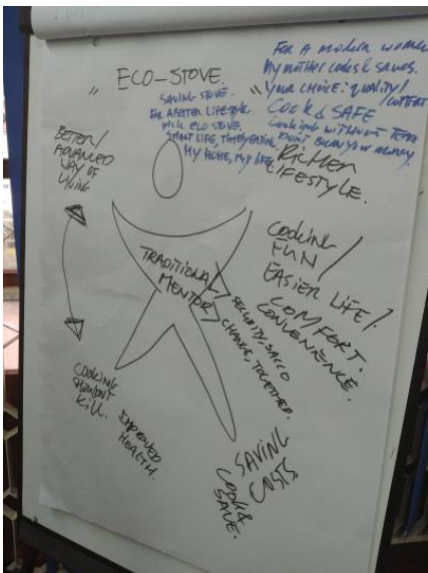 ECO-STOVE.
SAVING STOVE.
FOR A BETTER LIFESTYLE
ECO STOVE.
SMART LIFE, THRIFTY EATING,
MY HOME, MY LIFE
FOR A MODERN WOMEN
MY MOTHER COOKS & SAVES.
YOUR CHOICE: QUALITY/
COOK & SAFE
COOKING WITHOUT TEARS
DON'T BURN YOUR MONEY.
RICHER
LIFESTYLE.
BETTER/
ADVANCED
WAY OF
LIVING
COOKING
FUN /
EASIER LIFE/
COMFORT.
CONVENIENCE.
TRADITIONAL/
MENTOR
SECURITY, SACCO
CHANGE, TOGETHER.
COOKING
SHOULDN'T
KILL.
IMPROVED
HEALTH.
SAVING
COSTS
COOK &
SAVE.